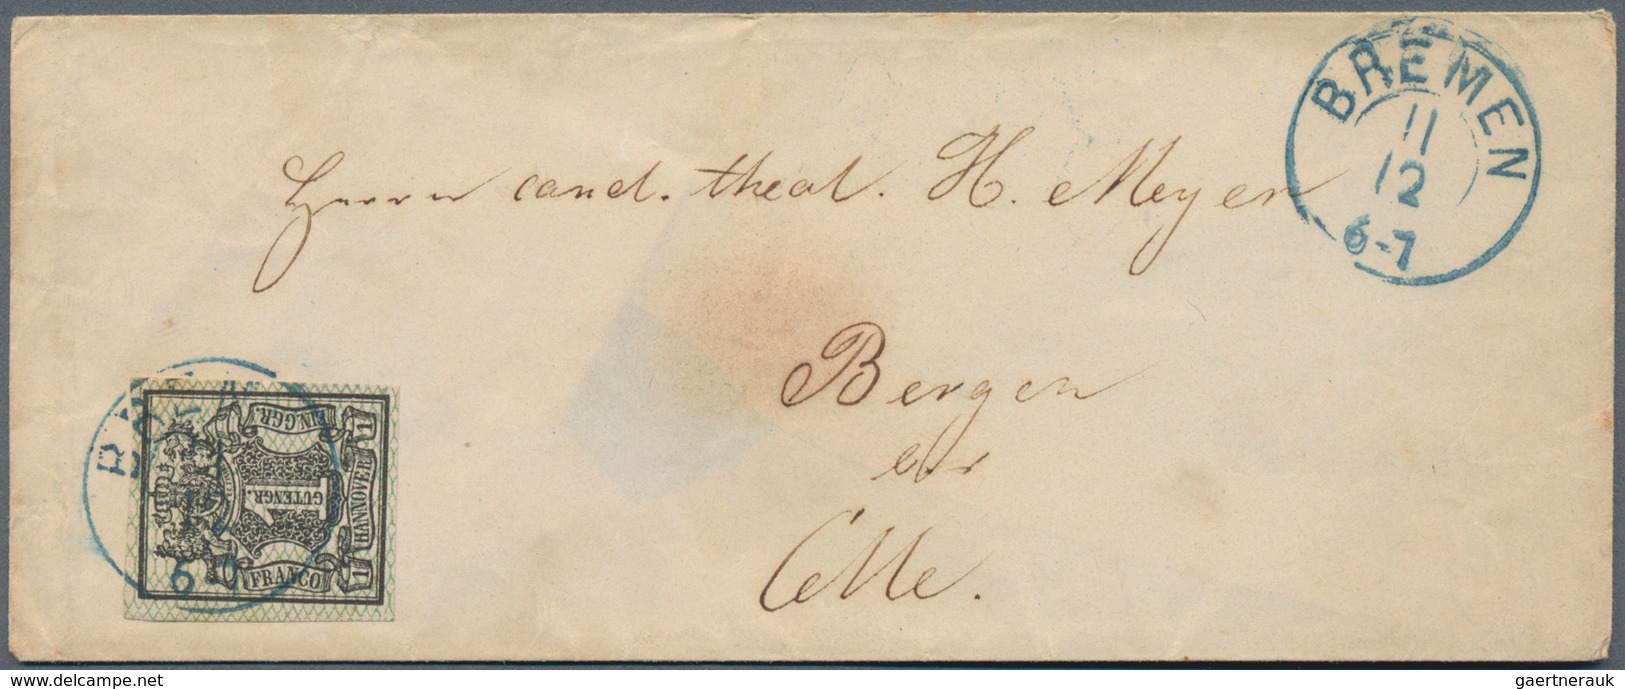 BREMEN
11
12
6-7
Herrn cand. theol. H. Meyer
Bergen
Celle.
BREMEN
12
6-7
EIN GGR.
1
HANNOVER
1
GUTENGR.
1
FRANCO
delcampe.net
gaertnerauk